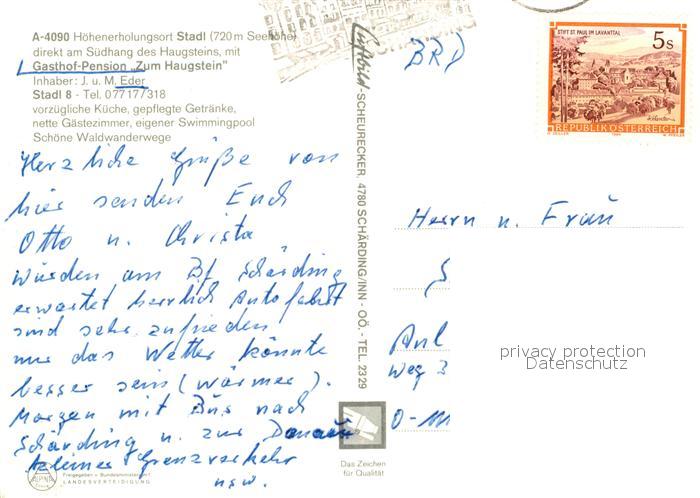 A-4090 Höhenerholungsort Stadl (720 m Seehöhe)
direkt am Südhang des Haugsteins, mit
Gasthof-Pension „Zum Haugstein"
Inhaber: J. u. M. Eder
Stadl 8 - Tel. 07717/318
vorzügliche Küche, gepflegte Getränke,
nette Gästezimmer, eigener Swimmingpool
Schöne Waldwanderwege
Herzliche Grüße von
hier senden Euch
Otto u. Christa
wurden am Bf Schärding
erwartet herrlich Autofahrt
sind sehr zufrieden
nur das Wetter könnte
besser sein (wärmer).
Morgen mit Bus nach
Schärding u. zur Donau
kleiner Grenzverkehr
usw.
ALPINA
Freigegeben v. Bundesministerium f.
LANDESVERTEIDIGUNG
Luftbild-SCHEURECKER, 4780 SCHÄRDING/INN - OÖ. - TEL. 2329
Das Zeichen
für Qualität
BRD
STIFT ST. PAUL IM LAVANTTAL
5 S
REPUBLIK ÖSTERREICH
Herrn u. Frau
S
Anl
Weg
privacy protection
Datenschutz